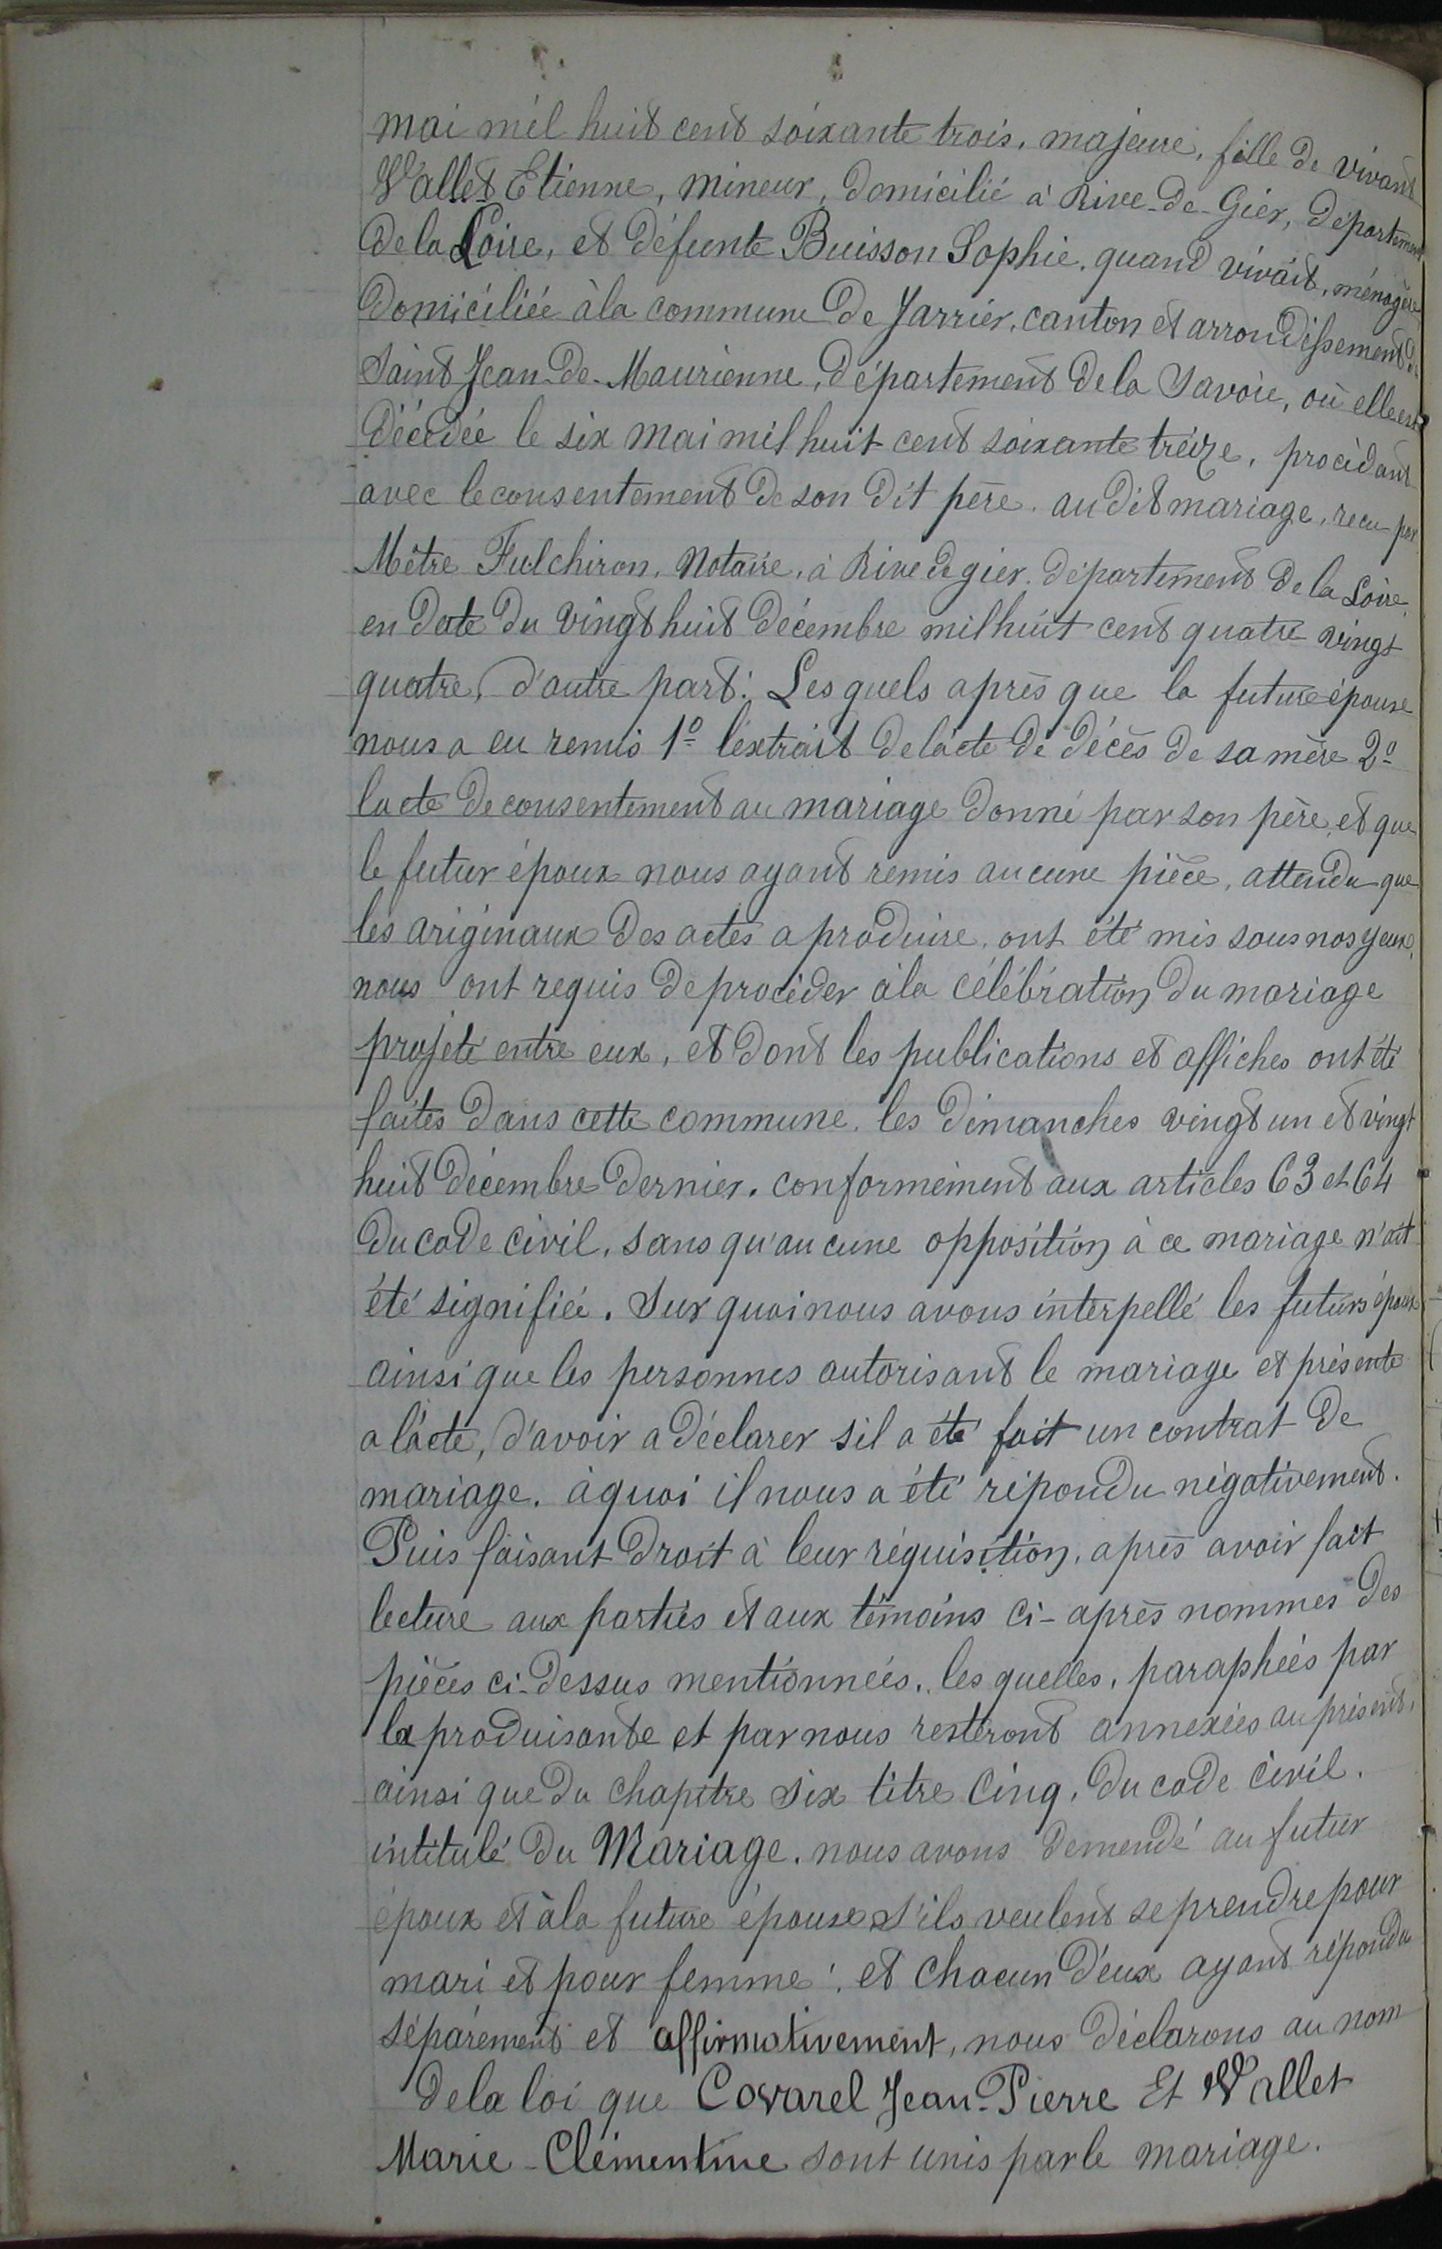 mai mil huit cent soixante trois, majeure, fille de vivant
Vallet Etienne, mineur, domicilié à Rive-de-Gier, département
de la Loire, et défunte Buisson Sophie, quand vivait, ménagère
domiciliée à la commune de Jarrier, canton et arrondissement de
Saint Jean-de-Maurienne, département de la Savoie, où elle est
décédée le six mai mil huit cent soixante treize, procédant
avec le consentement de son dit père, au dit mariage, recu par
Mêtre Fulchiron, Notaire, à Rive de gier, département de la Loire,
en date du vingt huit décembre mil huit cent quatre vingt
quatre, d'autre part: Les quels après que la future épouse
nous a eu remis 1º l'extrait de l'acte de décès de sa mère 2º
lacte de consentement au mariage donné par son père, et que
le futur époux nous ayant remis aucune pièce, attendu que
les ariginaux des actes a produire, ont été mis sous nos yeux,
nous ont requis de procéder à la célébration du mariage
projeté entre eux, et dont les publications et affiches ont été
faites dans cette commune, les dimanches vingt un et vingt
huit décembre dernier, conformément aux articles 63 et 64
du code civil, sans qu'aucune opposition à ce mariage n'ait
été signifiée. Sur quoi nous avons interpellé les futurs époux
ainsi que les personnes autorisant le mariage et présente
a l'acte, d'avoir a déclarer s'il a été fait un contrat de
mariage, à quoi il nous a été répondu négativement.
Puis faisant droit à leur réquisition, après avoir fait
lecture aux parties et aux témoins ci-après nommés des
pièces ci-dessus mentionnées, les quelles, paraphées par
la produisante et par nous resteront annexées au présent,
ainsi que du chapitre six titre cinq, du code civil,
intitulé du Mariage, nous avons demendé au futur
époux et à la future épouse s'ils veulent se prendre pour
mari et pour femme: et chacun d'eux ayant répondu
séparément et affirmativement, nous déclarons au nom
de la loi que Covarel Jean-Pierre Et Vallet
Marie-Clémentine sont unis par le mariage.